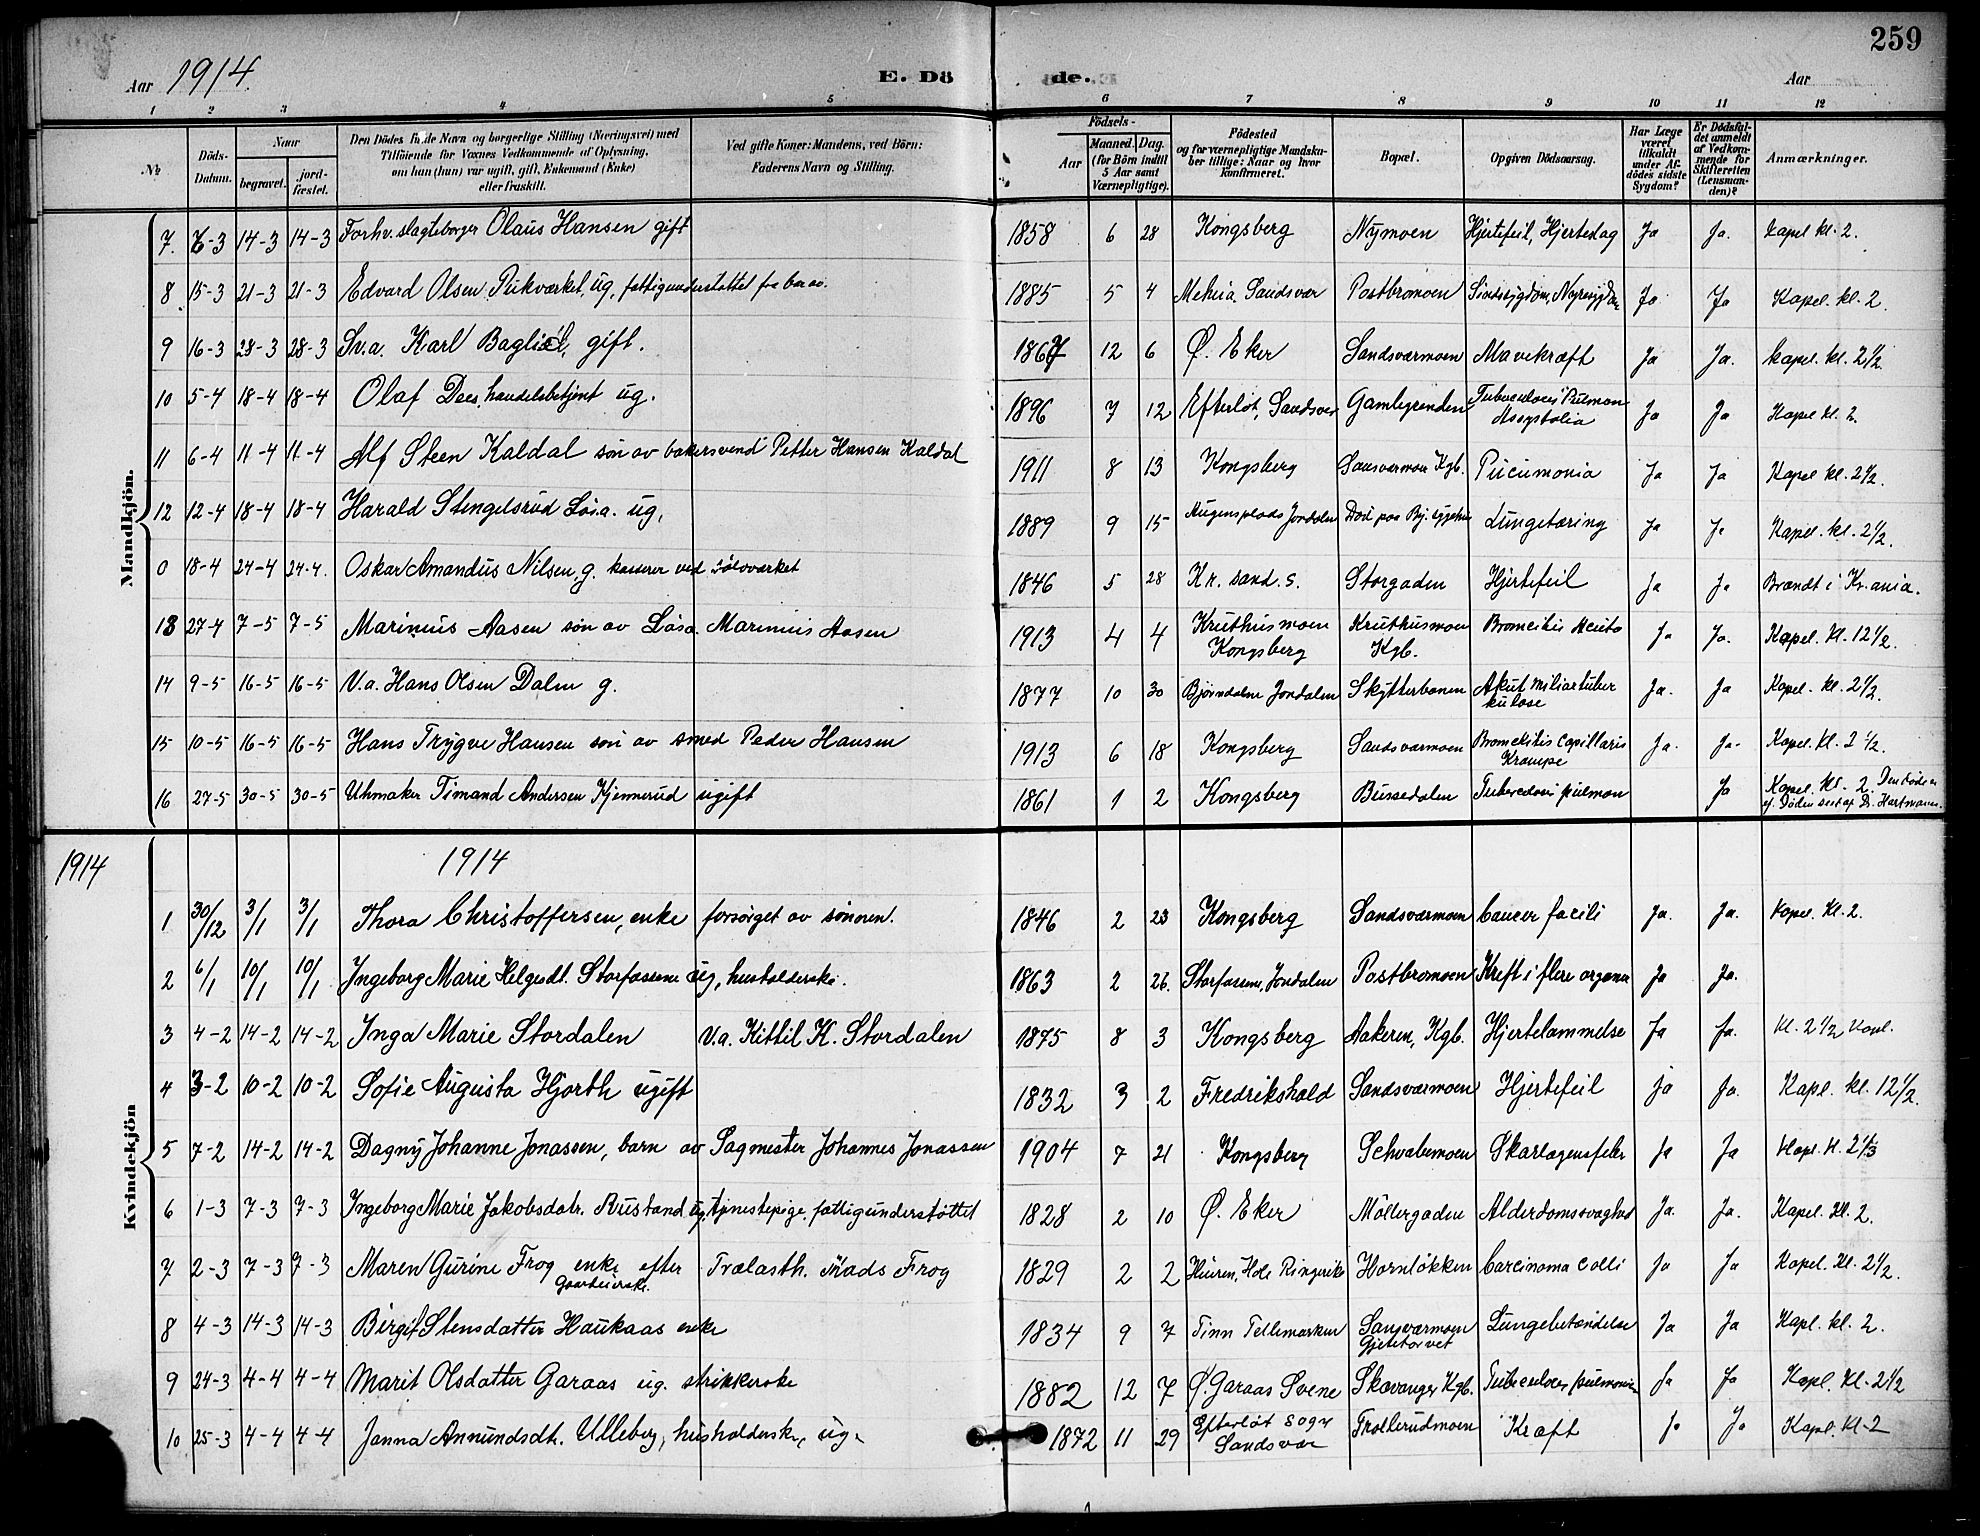 259
Aar 1914. E. Dö de. Aar
1 2 3 4 5 6 7 8 9 10 11 12
№ Döds-Datum. Naar begravet. jord-fæstet. Den Dödes fulde Navn og borgerlige Stilling (Næringsvei) med Tilföiende for Voxnes Vedkommende af Oplysning, om han (hun) var ugift, gift, Enkemand (Enke) eller fraskilt. Ved gifte Koner: Mandens, ved Börn: Faderens Navn og Stilling. Födsels- Aar Maaned. Dag. (for Börn indtil 5 Aar samt Værnepligtige). Födested og for værnepligtige Mandskaber tillige: Naar og hvor konfirmeret. Bopæl. Opgiven Dödsaarsag. Har Læge været tilkaldt under Afdödes sidste Sygdom? Er Dödsfaldet anmeldt af Vedkommende for Skifteretten (Lensmanden)? Anmærkninger.
Mandkjön.
7. 7-3 14-3 14-3 Forhv. slagteborger Olaus Hansen gift 1858 6 28 Kongsberg Nymoen Hjertefeil, Hjerteslag Ja Ja. Kapel kl. 2.
8 15-3 21-3 21-3 Edvard Olsen Pukverket, ug, fattigunderstøttet 1885 5 4 Sandsvær Postbromoen Sindssygdom, Ja Ja Kapel. kl. 2
9 16-3 28-3 28-3 Sv.a. Karl gift. 1867 12 6 Ø. Eker Sandsværmoen Mavekræft Ja Ja. Kapel. kl. 2 1/2
10 5-4 18-4 18-4 Olaf Dees, handelsbetjent ug. 1896 7 12 Efteløt, Sandsvær Gamlegrenden Tuberculosis Pulmon Assystolia Ja Ja Kapel kl. 2.
11 6-4 11-4 11-4 Alf Steen Kaldal søn av bakersvend Petter Hansen Kaldal 1911 8 13 Kongsberg Sansværmoen Kgb. Pneumonia Ja Ja Kapel kl. 2 1/2.
12 12-4 18-4 18-4 Harald Stengelsrud Løsa. ug, 1889 9 15 Jondalen Død paa By. sygehus Lungetæring Ja Ja Kapel. kl. 2 1/2.
0 18-4 24-4 24-4. Oskar Amandus Nilsen, g. kasserer ved sølvverket 1846 5 28 Kr. sand. s. Storgaden Hjertefeil Ja Ja Brændt i Kr.ania.
13 27-4 7-5 7-5 Marinius Aasen søn av Løsa. Marinius Aasen 1913 4 4 Kruthusmoen Kongsberg Kruthusmoen Kgb. Broncitis Acuta Ja Ja. Kapel. kl. 12 1/2.
14 9-5 16-5 16-5 V.a. Hans Olsen Dalen g. 1877 10 30 Bjørndalen Jondalen Skytterbanen Akut miliartuber kulose Ja. Ja Kapel. kl. 2 1/2.
15 10-5 16-5 16-5 Hans Trygve Hansen søn av smed Peder Hansen 1913 6 18 Kongsberg Sandsværmoen Bronchitis capillaris Krampe Ja. Ja. Kapel. kl. 2 1/2.
16 27-5 30-5 30-5 Uhrmaker Timand Andersen Kjennerud ugift 1861 1 2 Kongsberg Bussedalen Tuberculosis pulmon Ja Kapel. kl. 2.
1914 1914
Kvindekjön
1 30/12 3/1 3/1 Thora Christoffersen, enke forsørget av sønnen. 1846 2 23 Kongsberg Sandsværmoen Cancer facili Ja. Ja. Kapel. kl. 2.
2 6/1 10/1 10/1 Ingeborg Marie Helgesdt. Storaasene ug, husholderske. 1863 2 26. Jondalen Postbromoen Kreft i flere organer Ja Ja.
3 4-2 14-2 14-2 Inga Marie Stordalen V.a. Kittil K. Stordalen 1875 8 3 Kongsberg Aakeren, Kgb. Hjertelammelse Ja Ja. Kl. 2 1/2 Kapl.
4 3-2 10-2 10-2 Sofie Augusta Hjorth ugift 1832 3 2 Fredrikshald Sandsværmoen Hjertefeil Ja Ja. Kapl. kl. 12 1/2.
5 7-2 14-2 14-2 Dagny Johanne Jonassen, barn av Sagmester Johannes Jonassen 1904 7 21 Kongsberg Schvabemoen Skarlagensfeber Ja Ja Kapl. kl. 2 1/3
6 1-3 7-3 7-3 Ingeborg Marie Jakobsdatr. Rustand ug, tjenestepige, fattigunderstøttet 1828 2 10 Ø. Eker Möllergaden Alderdomssvaghed Ja. Ja. Kapel. kl. 2.
7 2-3 7-3 7-3 Maren Gurine Frog enke efter Trælasth. Mads Frog Gaardeierske. 1829 2 2 Hole Ringerike Hornløkken Carcinoma Colli Ja Ja Kapel. kl. 2 1/2.
8 4-3 14-3 14-3 Birgit Stensdatter Haukaas enke 1834 9 7 Tinn Tellemarken Sansværmoen Gjetetorvet Lungebetændelse Ja Ja Kapl. kl. 2.
9 24-3 4-4 4-4 Marit Olsdatter Garaas ug. strikkerske 1882 12 7 Ø. Garaas Svene Skavanger Kgb. Tuberculoses pulmonis Ja Ja Kapl. kl. 2 1/2
10 25-3 4-4 4-4 Janna Annundsdt. Ulleberg, husholderske, ug. 1872 11 29 Efteløt Sogn Sandsvær Trollerudmoen Kræft Ja Ja Kapel. kl. 2